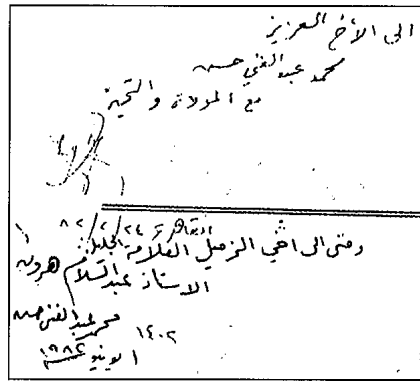 الى الأخ العزيز
محمد عبد الغني حسن
مع المودة والتحية
القاهرة ٢٤/ /٨٢
ومنى الى اخي الزميل العلامة الجليل
الاستاذ عبد السلام هرون
محمد عبد الغنى حسن
١٤٠٢
١ يونيو ١٩٨٢